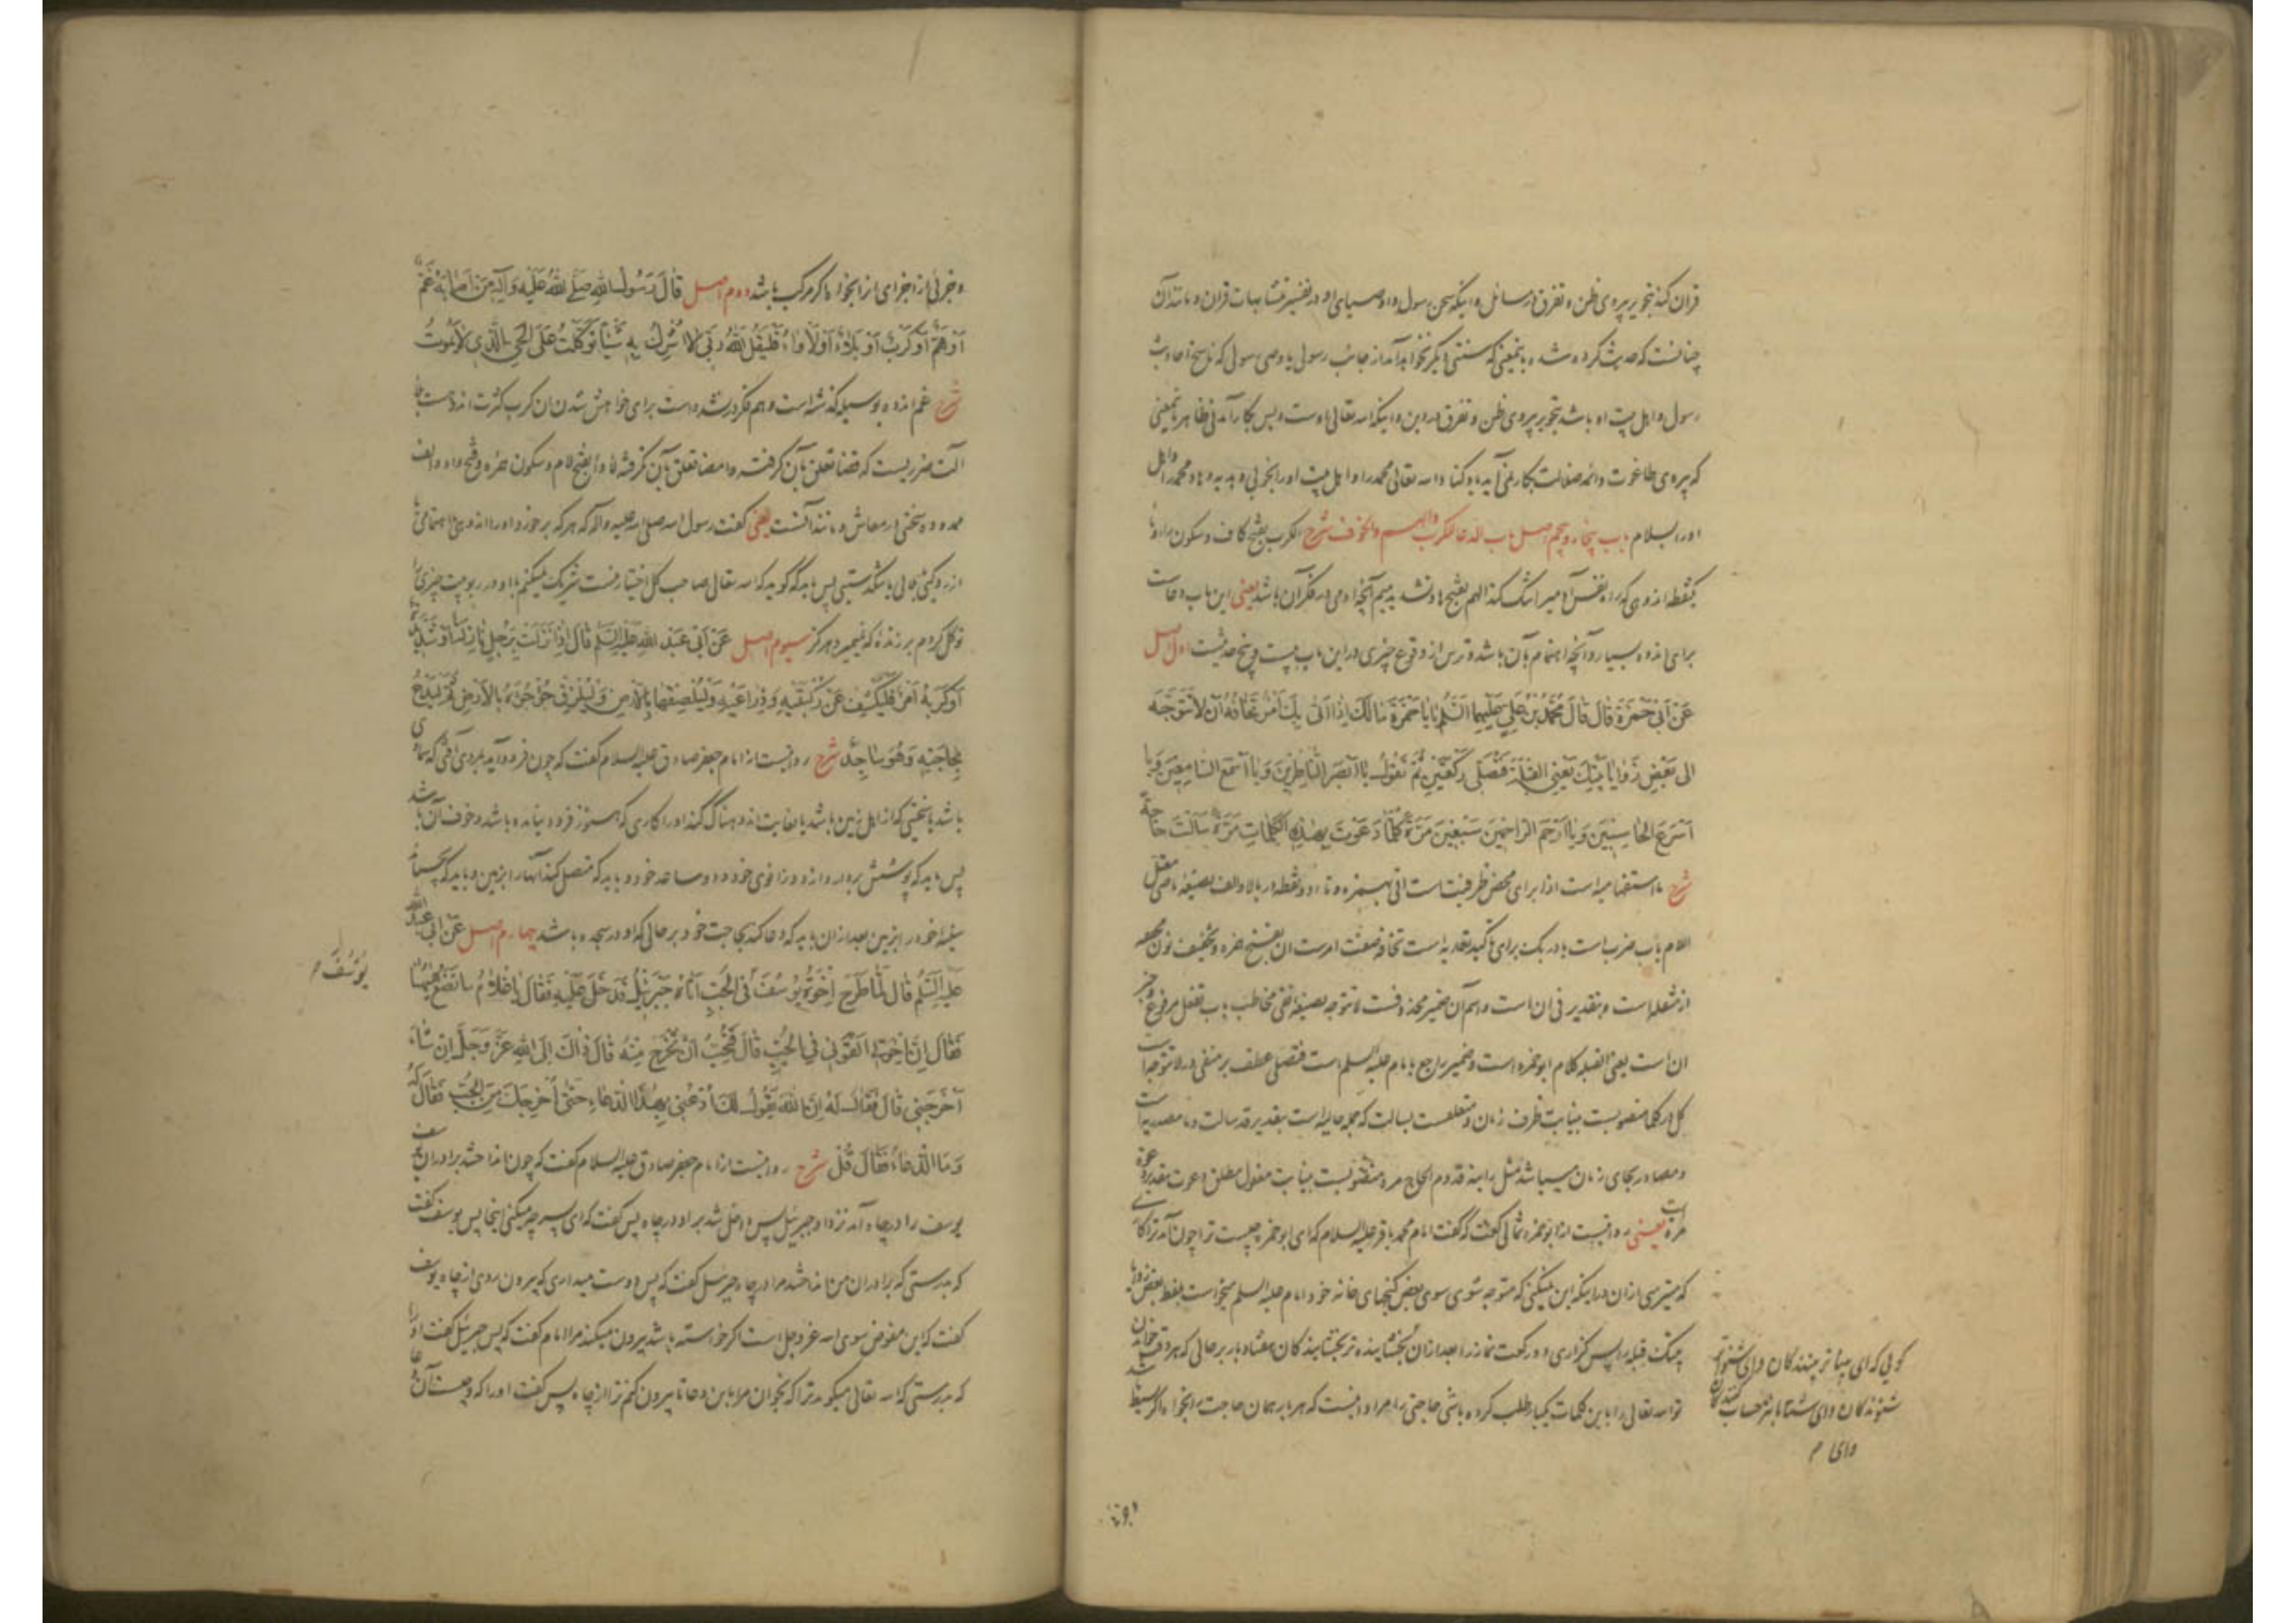 قرآن کند بتجویز پیروی ظن و تفرق در مسائل و اینکه سخن رسول و اوصیای او در تفسیر متشابهات قرآن و مانند آن
چنانست که حدیث کرده شده باینمعنی که سنتی دیگر نخواهد آمد از جانب رسولی یا وصی رسولی که ناسخ احادیث
رسول و اهل بیت او باشد بتجویز پیروی ظن و تفرق در دین و اینکه الله تعالی اوست و بس بکار آمدنی ظاهر باینمعنی
که پیروی طاغوت و ائمه ضلالت بکار نمی آید یاد کناد الله تعالی محمد را و اهل بیت او را بخوبی و هدیه دهاد محمد را و اهل
او را سلام باب پنجاه و پنجم اصل باب الدعا للکرب والهم والخوف شرح الکرب بفتح کاف و سکون راء و با
یکنقطه اندوهی که راه نفس آدمی را تنگ کند الهم بفتح ها و تشدید میم آنچه آدمی در فکر آن باشد یعنی این باب دعاست
برای اندوه بسیار و آنچه اهتمام بآن باشد و ترس از وقوع چیزی در این باب بیست و پنج حدیثست اول اصل
عَنْ اَبی حَمْزَةَ قالَ قالَ مُحَمَّدُ بْنُ عَلِیٍّ عَلَیْهِمَا السَّلَمُ یا بَا حَمْزَةَ مَا لَکَ اِذا اَتی بِکَ اَمْرٌ تَخافُهُ اَنْ لا تَتَوَجَّهَ
اِلی بَعْضِ زَوایا بَیْتِکَ یَعْنِی القِبْلَةَ فَتُصَلِّی رَکْعَتَیْنِ ثُمَّ تَقُولُ یا اَبْصَرَ النّاظِرینَ وَ یا اَسْمَعَ السّامِعینَ وَ یا
اَسْرَعَ الحاسِبینَ وَ یا اَرْحَمَ الرّاحِمینَ سَبْعینَ مَرَّةً کُلَّما دَعَوْتَ بِهٰذِهِ الکَلِماتِ مَرَّةً سَاَلْتَ حاجَةً
شرح ما استفهامیه است اذا برای محض ظرفیت است اتی بهمزه و تاء دو نقطه در بالا و الف بصیغه ماضی معتل
اللام باب ضرب است باء در بک برای تعدیه است تخافه صفت امرست ان بفتح همزه و تخفیف نون
از مثقله است و بتقدیر فی ان است و اسم آن ضمیر محذوفست لا تتوجه بصیغه نفی مخاطب باب تفعل مرفوع و خبر
ان است یعنی القبله کلام ابو حمزه است و ضمیر راجع بامام علیه السلم است فتصلی عطف بر منفی در لا تتوجه است
کل در کلما منصوبست بنیابت ظرف زمان و متعلقست بسالت که جمله حالیه است بتقدیر قد سالت و ما مصدریه است
و مصادر بجای زمان میباشد مثل رایته قدوم الحاج مره منصوبست بنیابت مفعول مطلق دعوت بتقدیر دعوة
مرة است یعنی روایتست از ابو حمزه ثمالی گفت که گفت امام محمد باقر علیه السلام که ای ابو حمزه چیست ترا چون آمد ترا کاری
که میترسی از آن در اینکه این نمیکنی که متوجه شوی سوی بعض کنجهای خانه خود امام علیه السلم میخواست بلفظ بعض زوایا
بیتک قبله را پس گزاری دو رکعت نماز را بعد از آن بخشاینده تر بخشایندگان هفتاد بار بر حالی که هر وقت خواندن
تو الله تعالی را باین کلمات یکبار طلب کرده باشی حاجتی را مراد اینست که هر بار همان حاجت را بخواه اگر بسیط باشد
گویی که ای بیناتر بینندگان و ای شنواتر
شنوندگان و ای شتابانتر حساب کنندگان
و ای م
وجزئی
وجزئی از اجزای آنرا بخواه اگر مرکب باشد دوم اصل قالَ رَسُولُ اللهِ صَلَّی اللهُ عَلَیْهِ وَ آلِهِ مَنْ اَصابَهُ غَمٌّ
اَوْ هَمٌّ اَوْ کَرْبٌ اَوْ بَلاءٌ اَوْ لَاْواءٌ فَلْیَقُلْ اللهُ رَبّی لا اُشْرِکُ بِهِ شَیْئًا تَوَکَّلْتُ عَلَی الحَیِّ الَّذی لا یَمُوتُ
شرح غم اندوه بر گذشته است و هم فکر در برای خواهش شدن آن کرب کثرت اندوهست
آنست ضرریست که قضا تعلق بآن گرفته و امضا تعلق بآن نگرفته لأواء بفتح لام و سکون همزه و فتح واو و الف
ممدوده سختی در معاش و مانند آنست یعنی گفت رسول الله صلی الله علیه و آله که هر که برخورد او را اندوهی یا اهتمامی یا
پس باید که گوید که الله تعالی صاحب کل اختیار منست شریک نمیکنم با او در ربوبیت چیزی را
توکل کردم بر زنده که نمیمیرد هرگز سیوم اصل عَنْ اَبی عَبْدِ اللهِ عَلَیْهِ السَّلَمُ قالَ اِذا نَزَلَتْ بِرَجُلٍ نازِلَةٌ اَوْ شَدیدَةٌ
اَوْ کَرَبَهُ اَمْرٌ فَلْیَکْشِفْ عَنْ رُکْبَتَیْهِ وَ ذِراعَیْهِ وَ لْیُلْصِقْهُما بِالاَرْضِ وَ لْیُلْزِقْ جُؤْجُؤَهُ بِالاَرْضِ ثُمَّ لْیَدْعُ
بِحاجَتِهِ وَ هُوَ ساجِدٌ شرح روایتست از امام جعفر صادق علیه السلام گفت که چون فرود آید بمردی آفتی که سماوی
باشد یا سختی که از اهل زمین باشد یا بغایت اندوهناک کند او را کاری که هنوز فرود نیامده باشد و خوف آن باشد
پس باید که پوشش بردارد از دو زانوی خود و دو ساعد خود و باید که متصل کند آنها را بزمین و باید که بچسباند
سینه خود را بزمین بعد از آن باید که دعا کند بحاجت خود بر حالی که او در سجده باشد چهارم اصل عَنْ اَبی عَبْدِ اللهِ
عَلَیْهِ السَّلَمُ قالَ لَمّا طَرَحَ اِخْوَةُ یُوسُفَ فِی الجُبِّ اَتاهُ جَبْرَئیلُ فَدَخَلَ عَلَیْهِ فَقالَ یا غُلامُ ما تَصْنَعُ هٰیهُنا
یُوسُفَ م
فَقالَ اِنَّ اِخْوَتی اَلْقَوْنی فِی الجُبِّ قالَ فَتُحِبُّ اَنْ تَخْرُجَ مِنْهُ قالَ ذٰلِکَ اِلَی اللهِ عَزَّ وَ جَلَّ اِنْ شاءَ
اَخْرَجَنی قالَ فَقالَ لَهُ اِنَّ اللهَ یَقُولُ لَکَ اُدْعُنی بِهٰذَا الدُّعاءِ حَتّی اُخْرِجَکَ مِنَ الجُبِّ فَقالَ لَهُ
وَ مَا الدُّعاءُ فَقالَ قُلْ شرح روایتست از امام جعفر صادق علیه السلام گفت که چون انداختند برادران یوسف
یوسف را در چاه آمد نزد او جبرئیل پس داخل شد بر او در چاه پس گفت که ای پسر چه میکنی اینجا پس یوسف گفت
که بدرستی که برادران من انداختند مرا در چاه جبرئیل گفت که پس دوست میداری که بیرون روی از چاه یوسف
گفت که این مفوض سوی الله عز و جل است اگر خواسته باشد بیرون میکند مرا امام گفت که پس جبرئیل گفت او را
که بدرستی که الله تعالی میگوید ترا که بخوان مرا باین دعا تا بیرون کنم ترا از چاه پس گفت او را که و چیست آن دعا